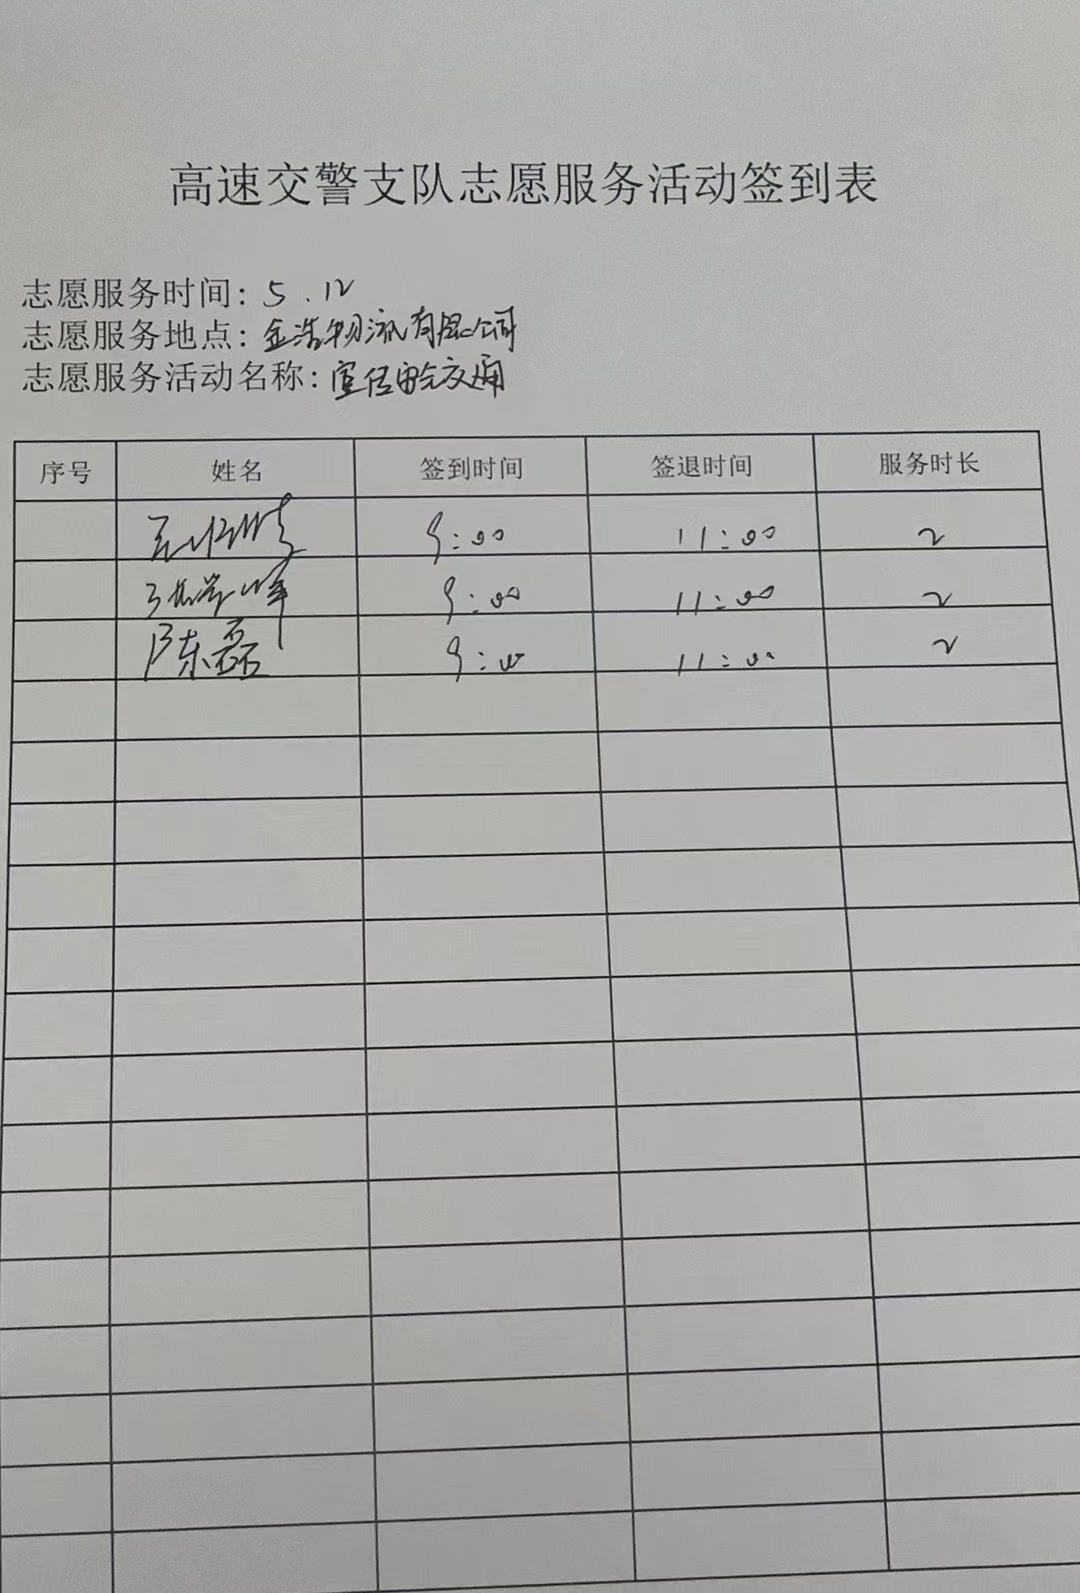 高速交警支队志愿服务活动签到表
志愿服务时间：5.12
志愿服务地点：金浩物流有限公司
志愿服务活动名称：宣传安全交通
序号 姓名 签到时间 签退时间 服务时长
9:00 11:00 2
9:00 11:00 2
陈磊 9:00 11:00 2